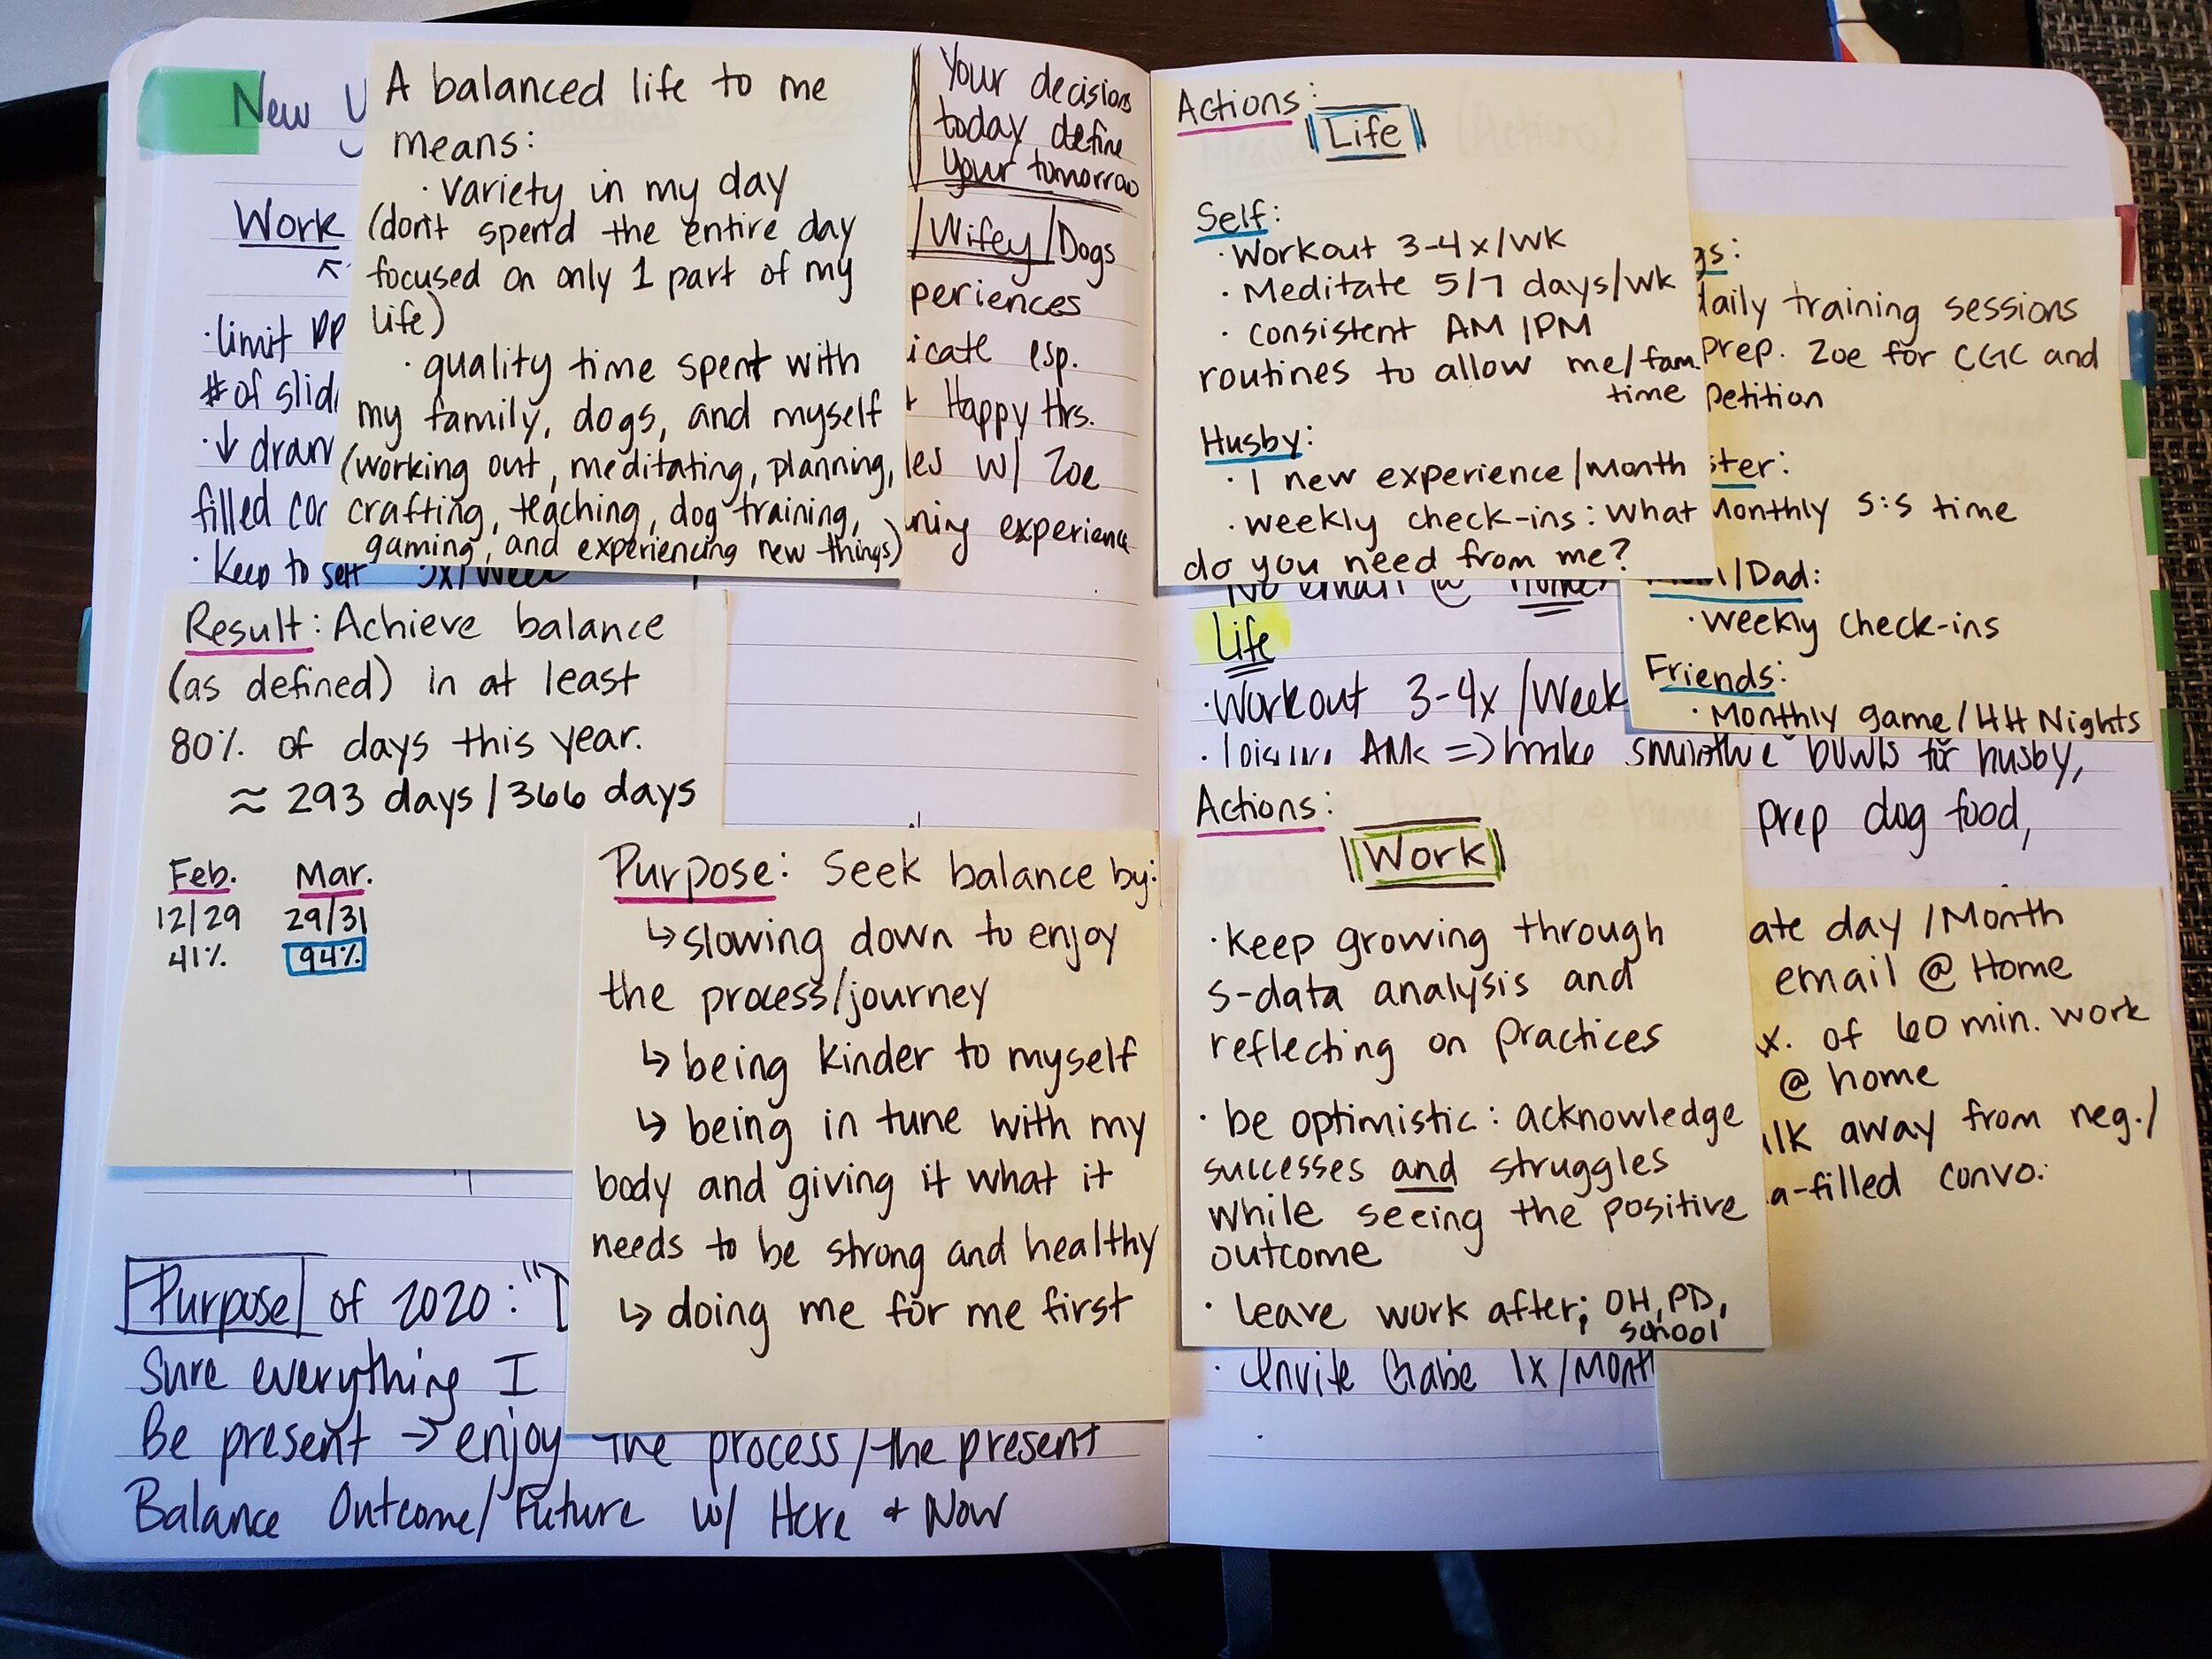 New
A balanced life to me
means:
· variety in my day
(don't spend the entire day
focused on only 1 part of my
life)
· quality time spent with
my family, dogs, and myself
(working out, meditating, planning,
crafting, teaching, dog training,
gaming, and experiencing new things)
Your decisions
today define
your tomorrow
Work
/Wifey/Dogs
· limit
# of
· ↓
filled
· Keep to self 3x/week
esp.
Happy Hrs.
w/ Zoe
experience
Result: Achieve balance
(as defined) in at least
80% of days this year.
≈ 293 days/366 days
Feb. Mar.
12/29 29/31
41% 94%
Purpose: Seek balance by:
↳ slowing down to enjoy
the process/journey
↳ being kinder to myself
↳ being in tune with my
body and giving it what it
needs to be strong and healthy
↳ doing me for me first
Purpose of 2020: "
Sure everything I
Be present → enjoy the process/the present
Balance Outcome/Future w/ Here + Now
Actions:
Life
Self:
· Workout 3-4x/wk
· Meditate 5/7 days/wk
· consistent AM/PM
routines to allow me/fam.
time
Husby:
· 1 new experience/month
· weekly check-ins: what
do you need from me?
daily training sessions
prep. Zoe for CGC and
Monthly S:S time
/Dad:
· weekly check-ins
Friends:
· Monthly game/HH Nights
No email @ home
Life
· Workout 3-4x/Week
AMs => make smoothie bowls for husby,
prep dog food,
Actions:
Work
· Keep growing through
s-data analysis and
reflecting on practices
· be optimistic: acknowledge
successes and struggles
while seeing the positive
outcome
· Leave work after; OH, PD,
school
day/Month
email @ Home
of 60 min. work
@ home
away from neg./
-filled convo.
· Invite Gabe 1x/Month